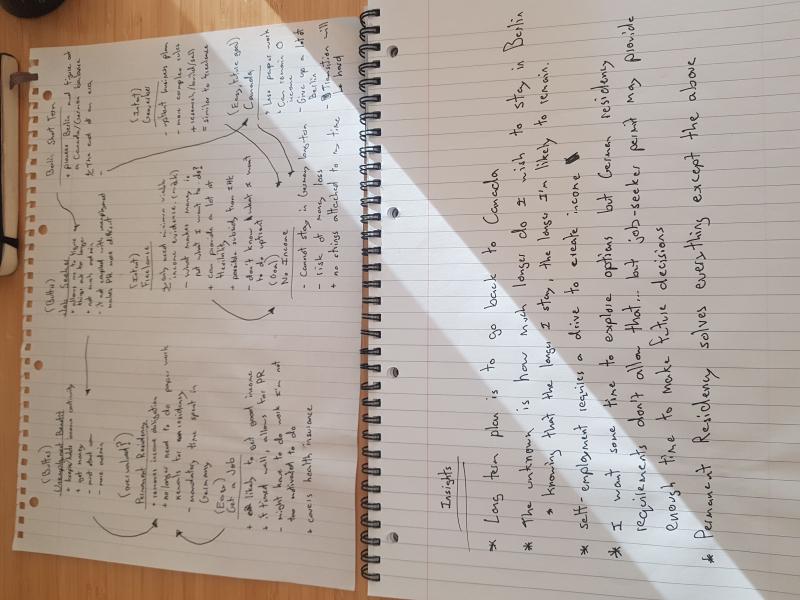 (Buffer)
Unemployment Benefit
+ keeps
+ get money
- must start now
- more admin
(overvalued?)
Permanent Residency
+ removes income obligation
+ no longer need to do paper work
renewals for residency
- mandatory time spent in
Germany
(Easy)
Get a Job
+ likely to get good income
+ if timed well, allows for PR
- might have to do work I'm not
too motivated to do
+ covers health insurance
(Buffer)
Job Seeker
+ allows me to figure
things out for longer
+ not much admin
- if not coupled with unemployment
makes PR more difficult
(Intent)
Freelance
+ only need minimum viable
income evidence
- what makes money is
not what I want to do?
+ can provide a lot of
flexibility
+ possible subsidy from
- don't know what I want
to do upfront
(Goal)
No Income
- Cannot stay in Germany long term
- risk of money loss
+ no strings attached to my time
Berlin Short Term
+ pursue Berlin and figure out
a Canada/German balance
The end of an era
-
(Intent)
- upfront business plan
- more complex rules
+ research/build/sell
= similar to freelance
(Easy, future goal)
Canada
+ Less paper work
+ Can remain 0
income
- Give up a lot of
Berlin
- Transition will
be hard
Insights
* Long term plan is to go back to Canada
* The unknown is how much longer do I wish to stay in Berlin
* knowing that the longer I stay, the longer I'm likely to remain.
* self-employment requires a drive to create income
* I want some time to explore options but German residency
requirements don't allow that... but job-seeker permit may provide
enough time to make future decisions
* Permanent Residency solves everything except the above